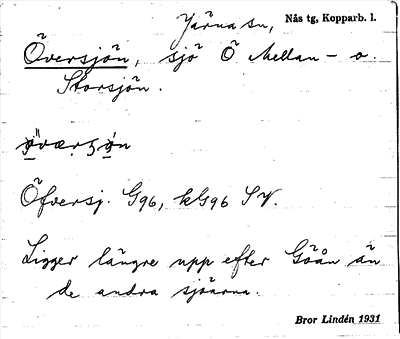 Järna sn, Nås tg, Kopparb. l.
Översjön, sjö Ö Mellan- o.
Storsjön.
Öfversj. G96, kG96 SV.
Ligger längre upp efter Göån än
de andra sjöarna.
Bror Lindén 1931